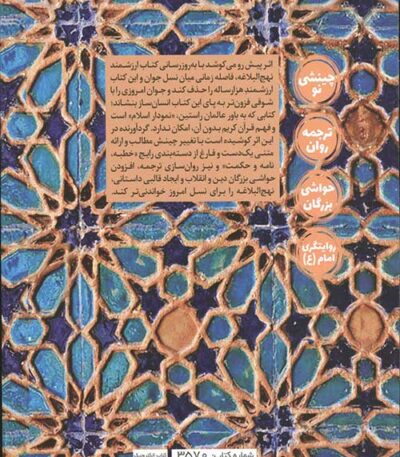 اثر پیش رو می‌کوشد با به‌روزرسانی کتاب ارزشمند
نهج‌البلاغه، فاصله زمانی میان نسل جوان و این کتاب
ارزشمند هزارساله را حذف کند و جوان امروزی را با
شوقی فزون‌تر به پای این کتاب انسان‌ساز بنشاند؛
کتابی که به باور عالمان راستین، «نمودار اسلام» است
و فهم قرآن کریم بدون آن، امکان ندارد. گردآورنده در
این اثر کوشیده است با تغییر چینش مطالب و ارائه
متنی یک‌دست و فارغ از دسته‌بندی رایج «خطبه،
نامه و حکمت» و نیز روان‌سازی ترجمه، افزودن
حواشی بزرگان دین و انقلاب و ایجاد قالبی داستانی،
نهج‌البلاغه را برای نسل امروز خواندنی‌تر کند.
چینشی
نو
ترجمه
روان
حواشی
بزرگان
روایتگری
امام (ع)
شماره کتاب: ۳۵۷۰